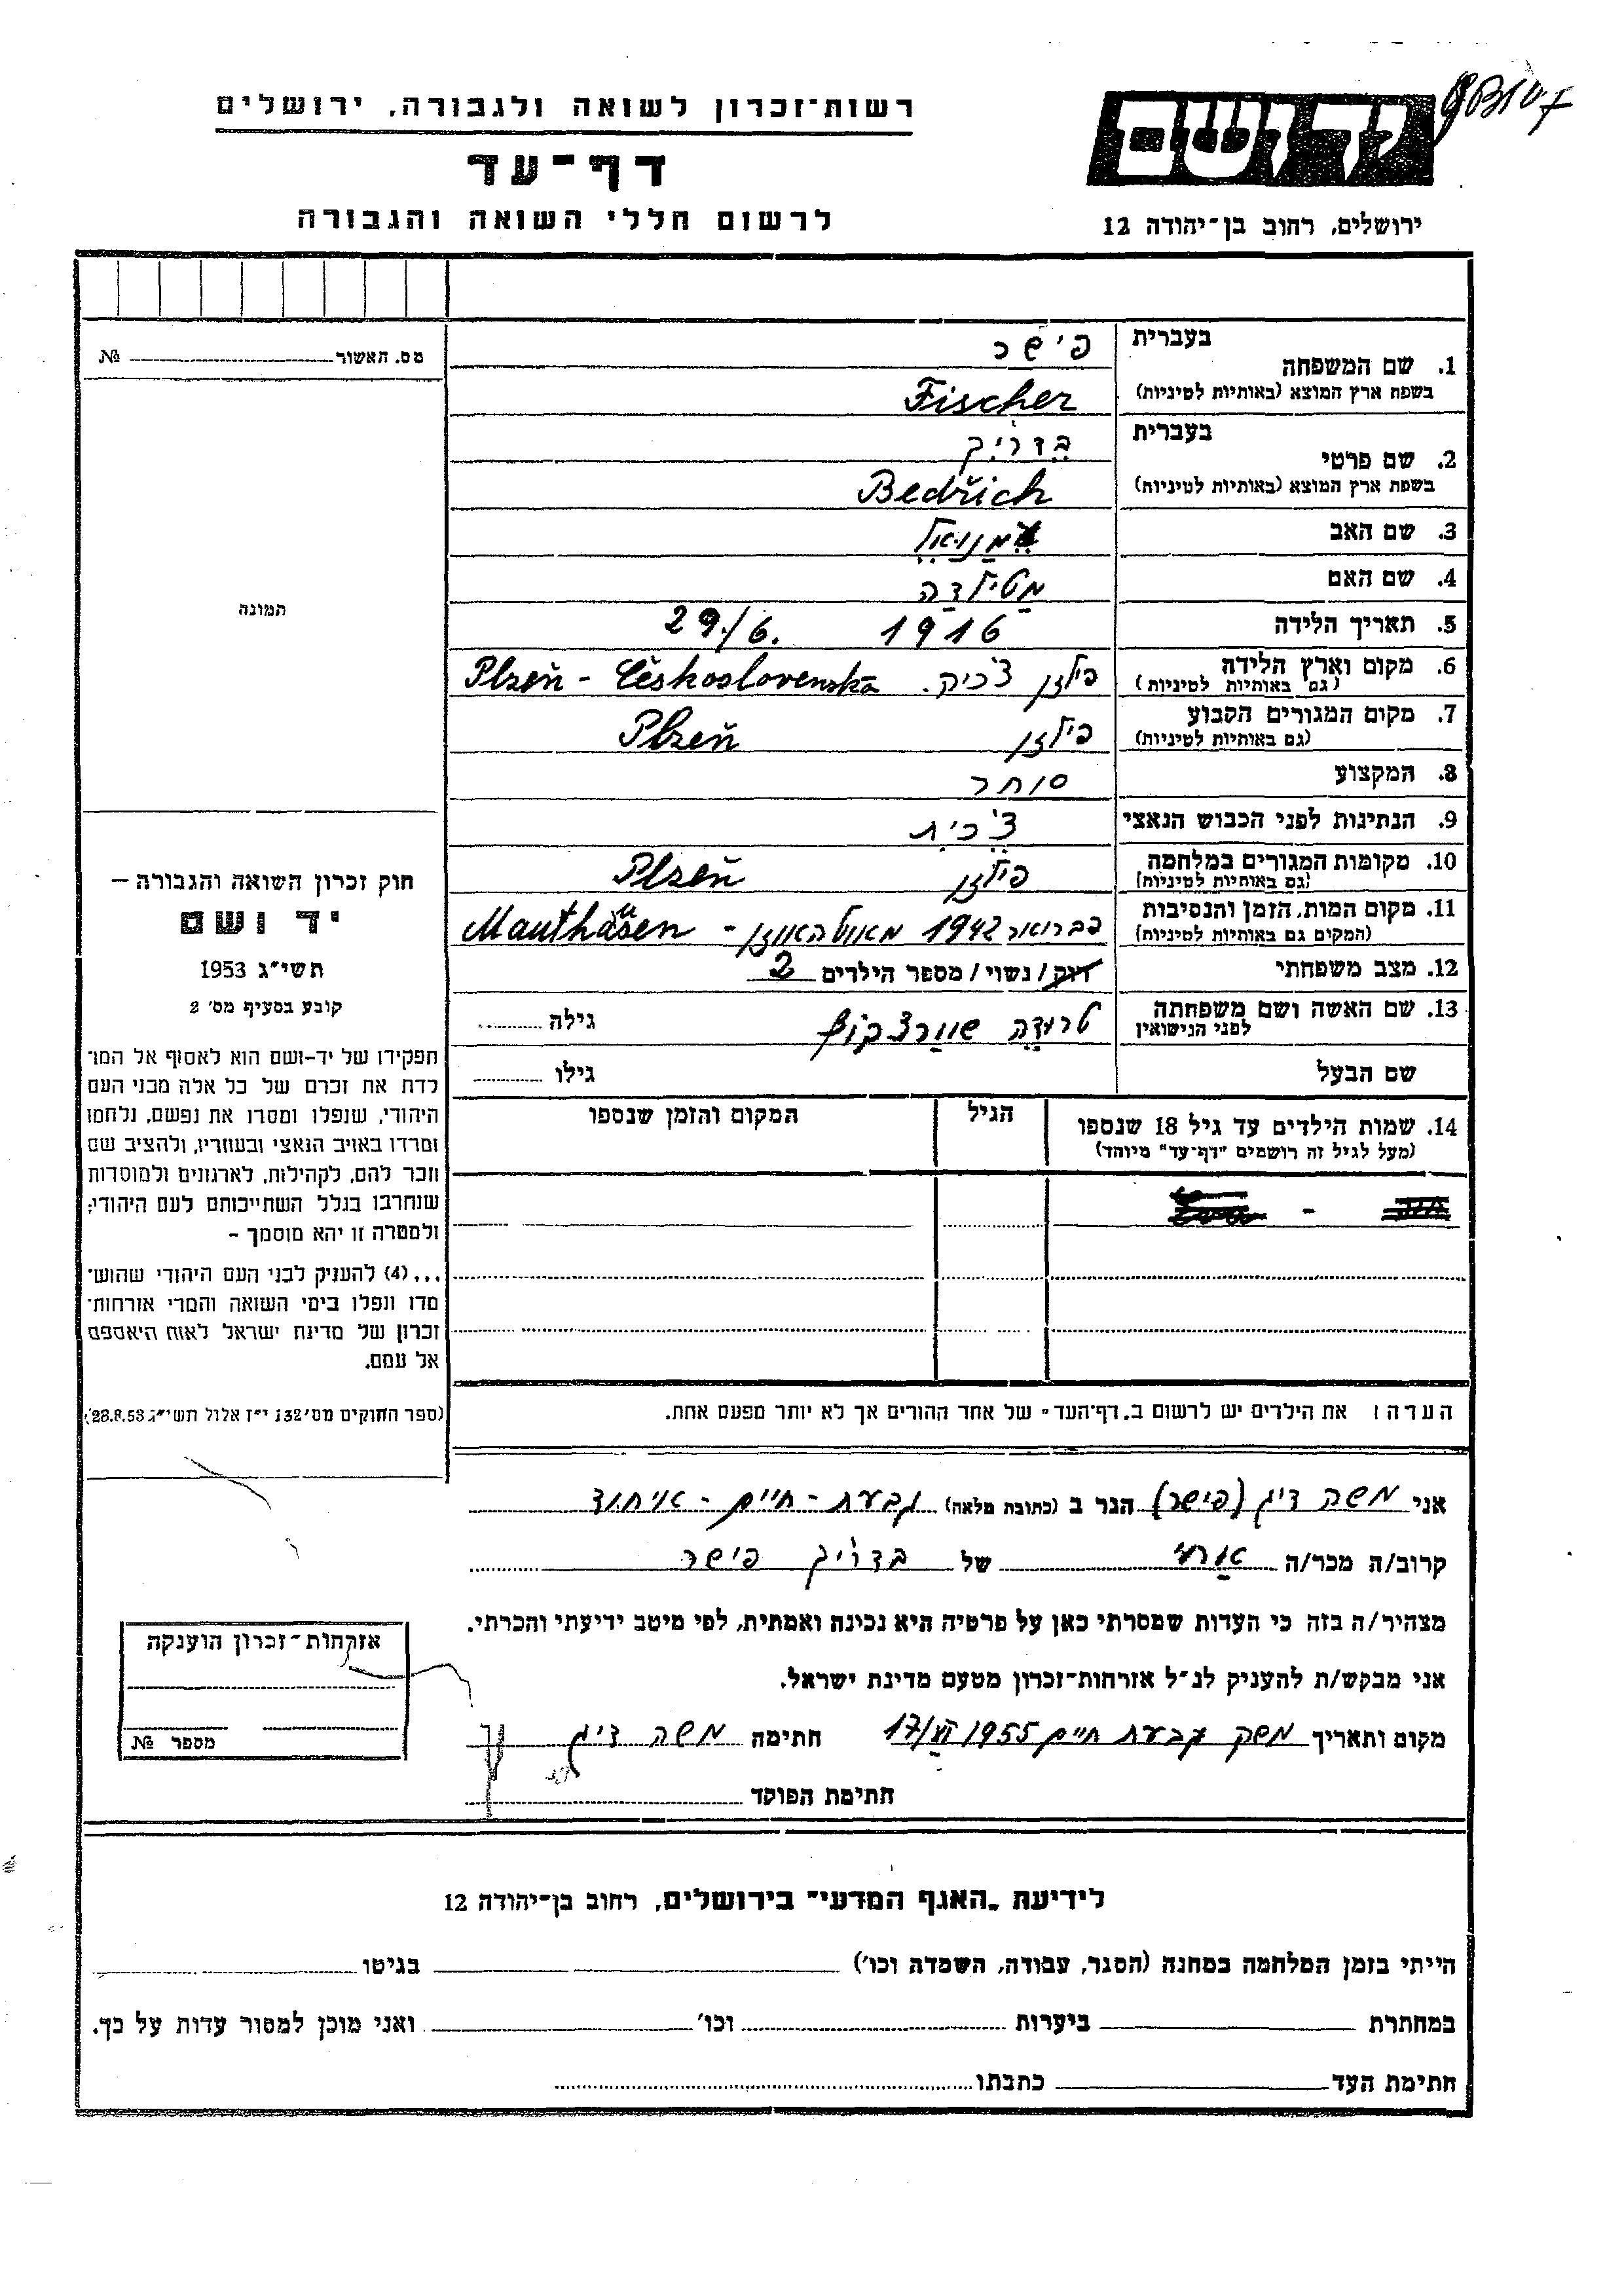 רשות־זכרון לשואה ולגבורה, ירושלים
דף־עד
לרשום חללי השואה והגבורה
יד ושם
ירושלים, רחוב בן־יהודה 12
בעברית
פישר
1. שם המשפחה
בשפת ארץ המוצא (באותיות לטיניות)
Fischer
בעברית
בדריך
2. שם פרטי
בשפת ארץ המוצא (באותיות לטיניות)
Bedřich
3. שם האב עמנואל
4. שם האם מטילדה
5. תאריך הלידה 1916 29./6.
6. מקום וארץ הלידה פילזן צ'כיק. Plzeň - Československa
(גם באותיות לטיניות)
7. מקום המגורים הקבוע פילזן Plzeň
(גם באותיות לטיניות)
8. המקצוע סוחר
9. הנתינות לפני הכבוש הנאצי צ'כית
10. מקומות המגורים במלחמה פילזן Plzeň
(גם באותיות לטיניות)
11. מקום המות, הזמן והנסיבות פברואר 1942 מאוטהאוזן - Mauthausen
(המקום גם באותיות לטיניות)
12. מצב משפחתי רווק/נשוי/מספר הילדים 2
13. שם האשה ושם משפחתה טרודה שוורצקופף גילה
לפני הנישואין
שם הבעל גילו
14. שמות הילדים עד גיל 18 שנספו הגיל המקום והזמן שנספו
(מעל לגיל זה רושמים "דף־עד" מיוחד)
הערה: את הילדים יש לרשום ב„דף־העד" של אחד ההורים אך לא יותר מפעם אחת.
מס. האשור №
תמונה
חוק זכרון השואה והגבורה —
יד ושם
תשי"ג 1953
קובע בסעיף מס' 2
תפקידו של יד-ושם הוא לאסוף אל המו־
לדת את זכרם של כל אלה מבני העם
היהודי, שנפלו ומסרו את נפשם, נלחמו
ומרדו באויב הנאצי ובעוזריו, ולהציב שם
וזכר להם, לקהילות, לארגונים ולמוסדות
שנחרבו בגלל השתייכותם לעם היהודי;
ולמטרה זו יהא מוסמך –
...(4) להעניק לבני העם היהודי שהוש־
מדו ונפלו בימי השואה והמרי אזרחות־
זכרון של מדינת ישראל לאות היאספם
אל עמם.
(ספר החוקים מס' 132 י"ז אלול תשי"ג 28.8.53)
אני משה דיג (פישר) הגר ב (כתובת מלאה) גבעת - חיים - איחוד
קרוב/ה מכר/ה אחי של בדריך פישר
מצהיר/ה בזה כי העדות שמסרתי כאן על פרטיה היא נכונה ואמתית, לפי מיטב ידיעתי והכרתי.
אני מבקש/ת להעניק לנ"ל אזרחות־זכרון מטעם מדינת ישראל.
מקום ותאריך משק גבעת חיים 17/VI 1955 חתימה משה דיג
חתימת הפוקד
אזרחות־זכרון הוענקה
מספר №
לידיעת „האגף המדעי" בירושלים, רחוב בן־יהודה 12
הייתי בזמן המלחמה במחנה (הסגר, עבודה, השמדה וכו') בגיטו
במחתרת ביערות וכו' ואני מוכן למסור עדות על כך.
חתימת העד כתבתו